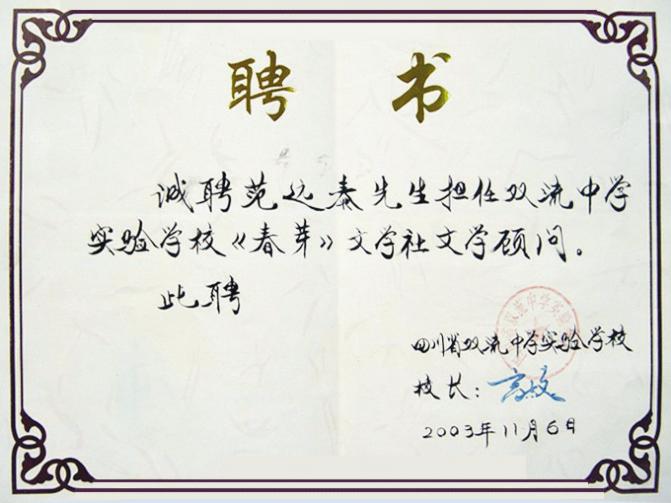 聘书
诚聘范远泰先生担任双流中学
实验学校《春芽》文学社文学顾问。
此聘
四川省双流中学实验学校
校长：
2003年11月6日